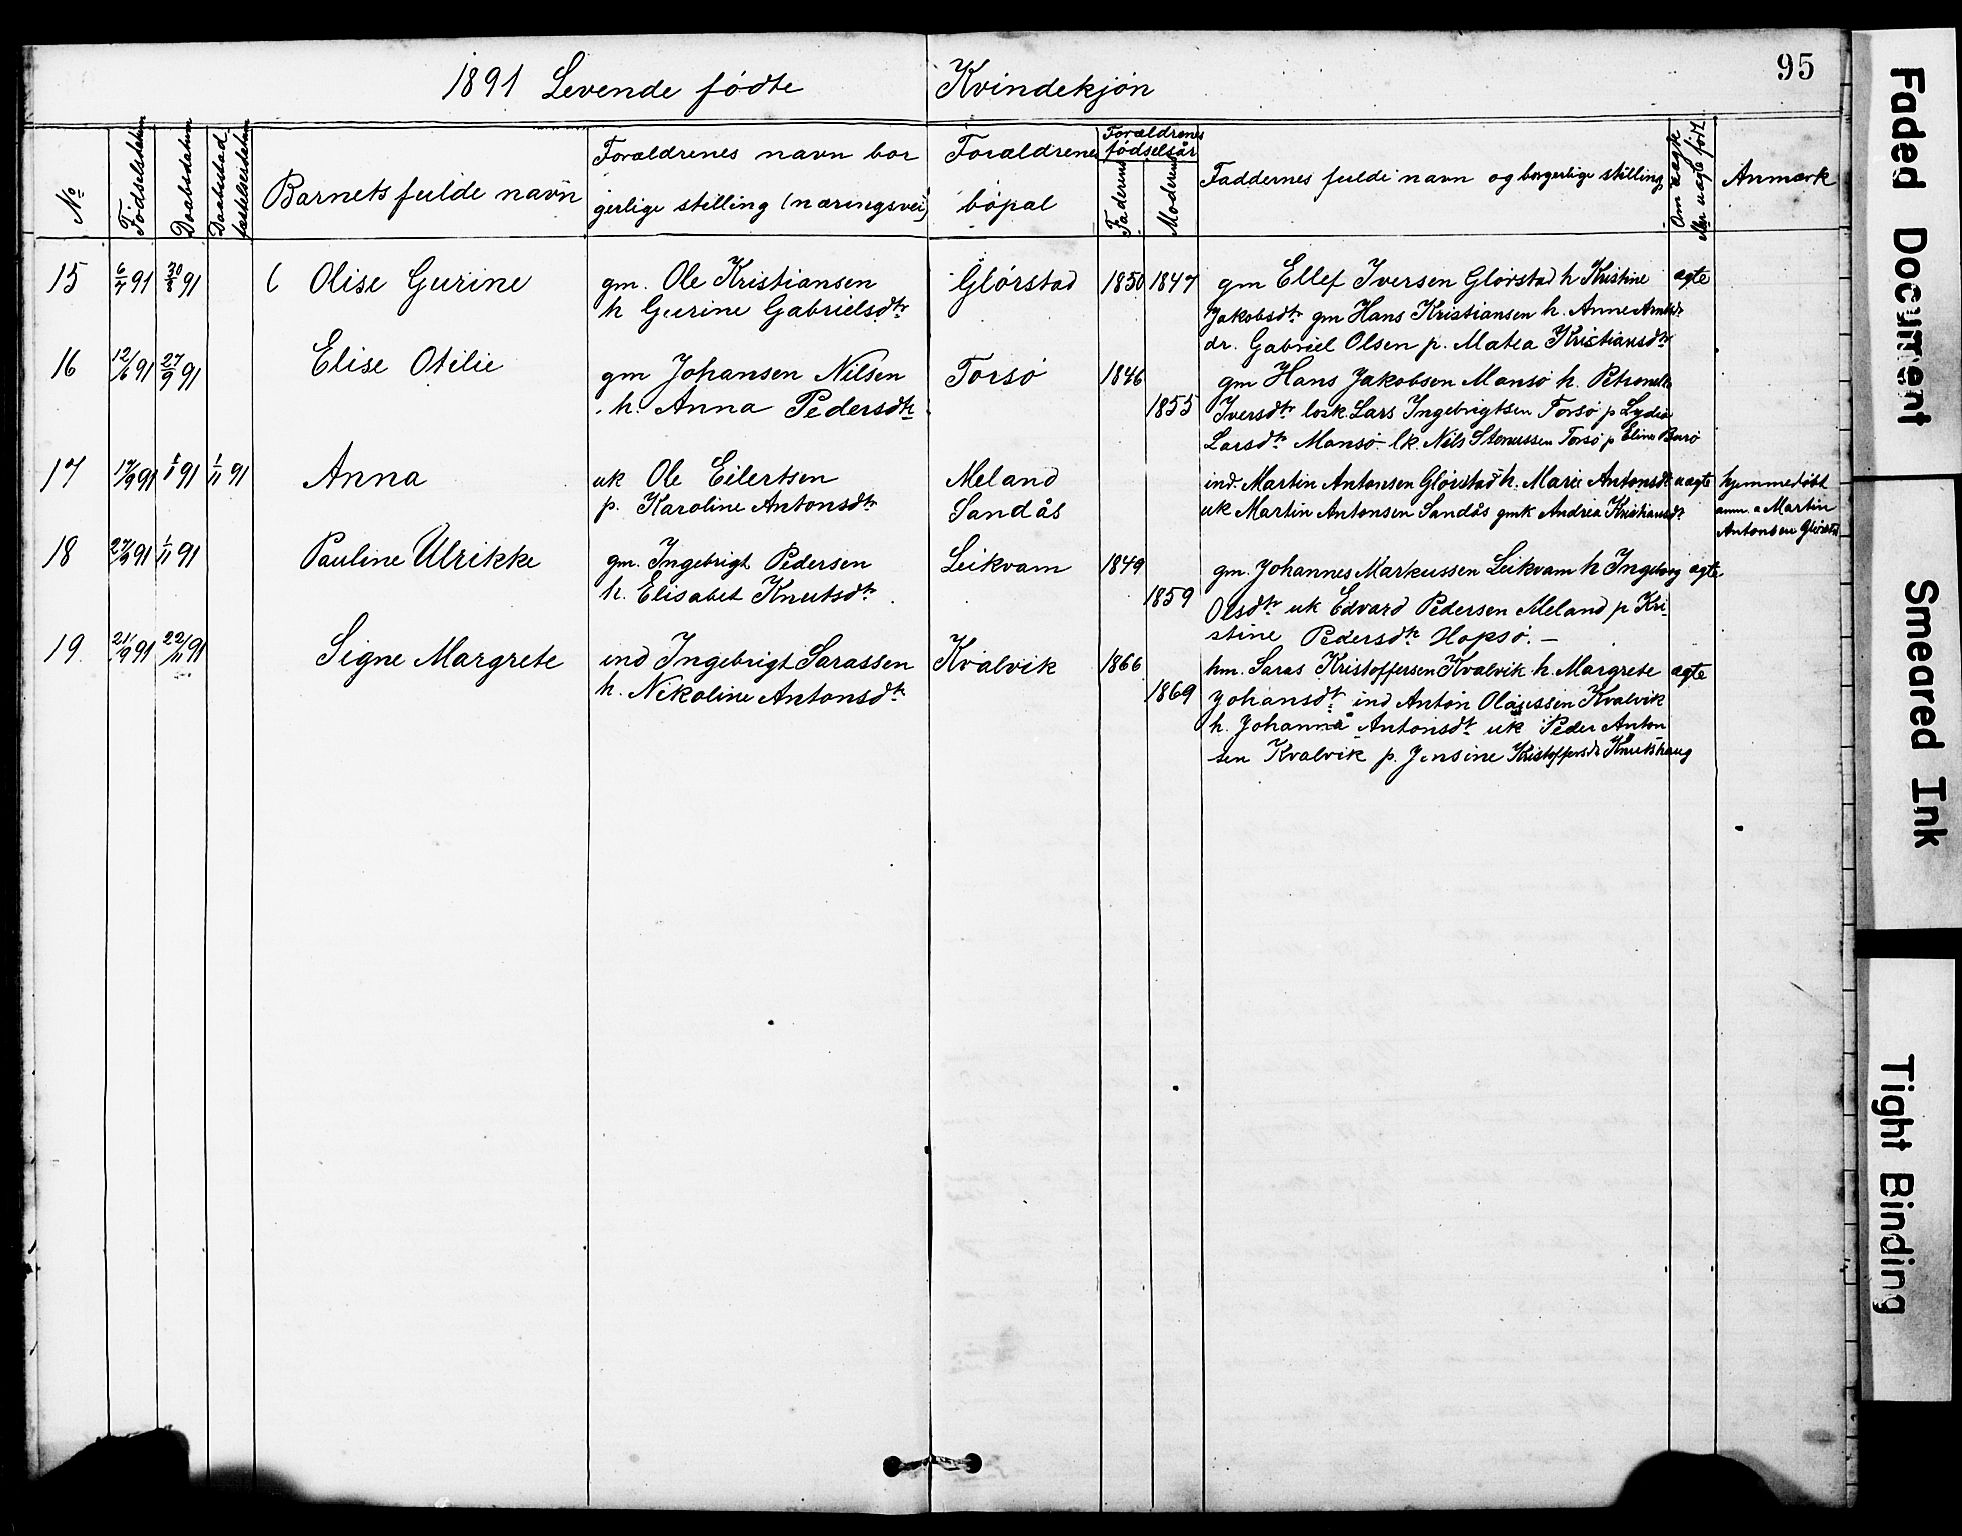 95
1891 Levende fødte Kvindekjøn
No
Fødselsdatum
Daabsdatum
Barnets fulde navn
Forældrenes navn bor
gerlige stilling (næringsvei)
Forældrenes
bøpal
Forældrenes
fødselsår
Faderens
Moderens
Faddernes fulde navn og borgerlige stilling
Om ægte
eller uægte født
Anmærk
15 6/7 91 30/8 91 Olise Gurine gm. Ole Kristiansen Glørstad 1850 1847 gm Ellef Iversen Glørstad h Kristine ægte
h Gurine Gabrielsdtr Jakobsdtr gm Hans Kristiansen h. Anne
dr. Gabriel Olsen p. Matea Kristiansdtr
16 12/6 91 27/9 91 Elise Otilie gm Johansen Nilsen Torsø 1846 gm Hans Jakobsen Mansø h. Petronelle
h. Anna Pedersdtr 1855 Iversdtr losk. Lars Ingebrigtsen Torsø p Lydia
Larsdtr Mansø lk. Nils Torsø p Eline
17 17/9 91 91 1/11 91 Anna uk Ole Eilertsen Meland ind. Martin Antonsen Glørstad h. Marie Antonsdtr uægte hjemmedøbt
p. Karoline Antonsdtr Sandås uk Martin Antonsen Sandås gmk Andrea Kristiansdtr anm. a Martin
Antonsen Glørstad
18 27/9 91 1/11 91 Pauline Ulrikke gm. Ingebrigt Pedersen Leikvam 1849 gm. Johannes Markussen Leikvam h Ingeborg ægte
h. Elisabet Knutsdtr 1859 Olsdtr uk Edvard Pedersen Meland p Kri
stine Pedersdtr Hopsø. –
19 21/9 91 22/11 91 Signe Margrete ind Ingebrigt Sarassen Kvalvik 1866 hm. Saras Kristoffersen Kvalvik h. Margrete ægte
h. Nikoline Antonsdtr 1869 Johansdtr ind Anton Olaussen Kvalvik
h. Johanna Antonsdtr uk Peder Anton
sen Kvalvik p. Jensine Kristoffersdtr Knutshaug
Faded Document
Smeared Ink
Tight Binding